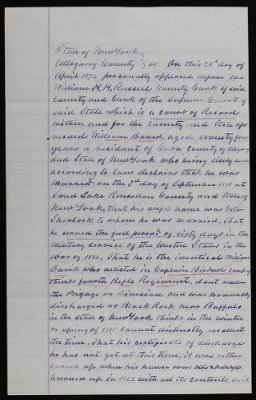 State of New York
Allegany County } ss. On this 26th day of
April 1872 personally appeared before me
William H. H. Russell County Clerk of said
County and Clerk of the Supreme Court of
said State which is a court of Record
within and for the County and State afo
resaid William David, aged seventy four
years a resident of Cuba County of Allegany
and State of New York who being duly sworn
according to law declares that he was
married on the 3rd day of September at
Sand Lake Rensselaer County and State of
New York, that his wife's name was
to whom he was married. That
he served the full period of sixty days in the
military service of the United States in the
war of 1812. That he is the identical William
David who enlisted in Captain company
Regiment, don't remem
the Brigade or Division and was honorably
discharged at Black Rock near Buffalo
in the State of New York think in the winter
or spring of 1815 cannot distinctly recollect
the time. That his certificate of discharge
he has not got at this time, it was either
burned up when his house was
burned up in 1822 with all its contents or it